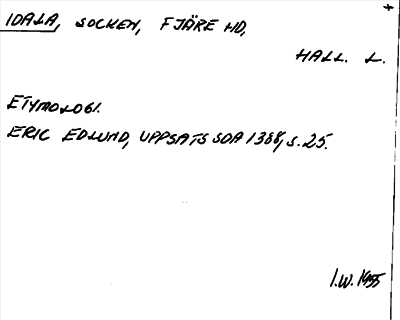 IDALA, SOCKEN, FJÄRE HD,
HALL. L.
ETYMOLOGI.
ERIC EDLUND, UPPSATS SOA 1388, S. 25.
I.W. 1955